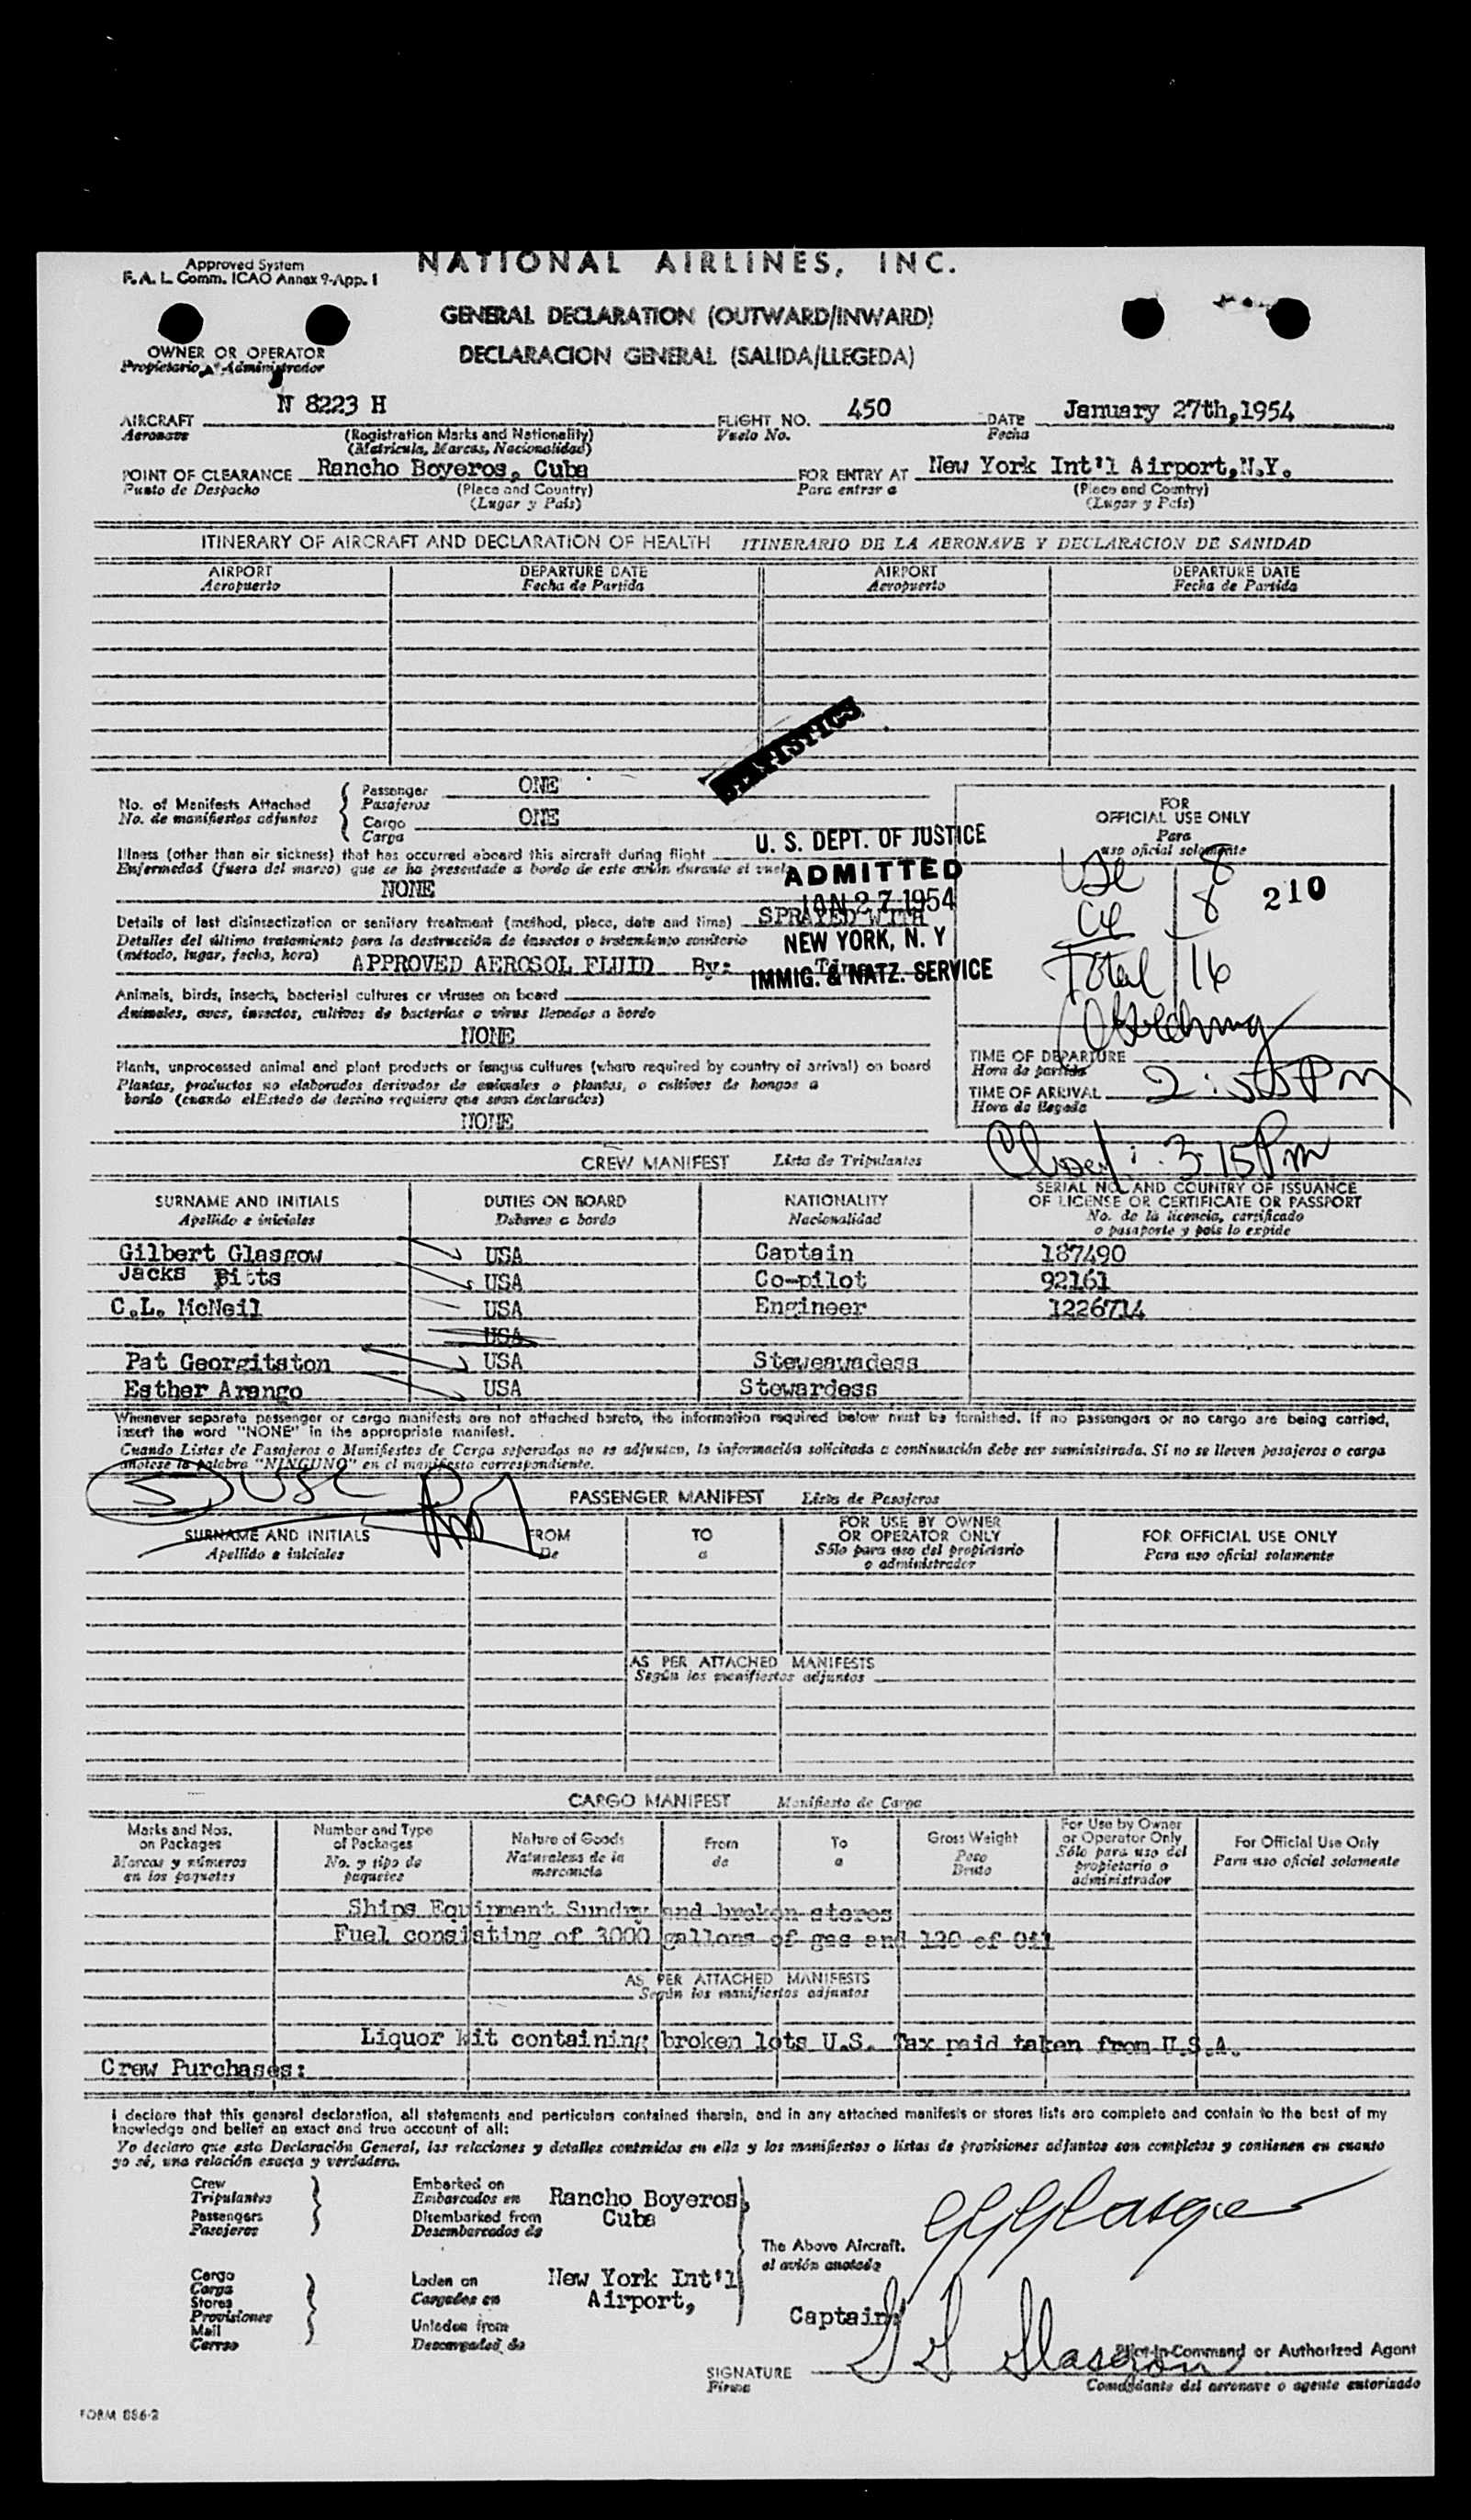 Approved System
F. A. L. Comm. ICAO Annex 9-App. 1
NATIONAL AIRLINES, INC.
GENERAL DECLARATION (OUTWARD/INWARD)
DECLARACION GENERAL (SALIDA/LLEGEDA)
OWNER OR OPERATOR
Propietario Administrador
AIRCRAFT N 8223 H FLIGHT NO. 450 DATE January 27th,1954
Aeronave (Registration Marks and Nationality) Vuelo No. Fecha
(Matricula, Marcas, Nacionalidad)
POINT OF CLEARANCE Rancho Boyeros, Cuba FOR ENTRY AT New York Int'l Airport,N.Y.
Punto de Despacho (Place and Country) Para entrar a (Place and Country)
(Lugar y País) (Lugar y País)
ITINERARY OF AIRCRAFT AND DECLARATION OF HEALTH ITINERARIO DE LA AERONAVE Y DECLARACION DE SANIDAD
AIRPORT DEPARTURE DATE AIRPORT DEPARTURE DATE
Aeropuerto Fecha de Partida Aeropuerto Fecha de Partida
STATISTICS
No. of Manifests Attached Passenger ONE
No. de manifiestos adjuntos Pasajeros
Cargo ONE
Carga
FOR
OFFICIAL USE ONLY
Para
uso oficial solamente
Illness (other than air sickness) that has occurred aboard this aircraft during flight
Enfermedad (fuera del mareo) que se ha presentado a bordo de este avión durante el vuelo
NONE
U. S. DEPT. OF JUSTICE
ADMITTED
JAN 27 1954
NEW YORK, N. Y
IMMIG. & NATZ. SERVICE
USC 8
8
210
Total 16
Details of last disinsectization or sanitary treatment (method, place, date and time) SPRAYED WITH
Detalles del último tratamiento para la destrucción de insectos o tratamiento sanitario
(método, lugar, fecha, hora) APPROVED AEROSOL FLUID By: Time
Animals, birds, insects, bacterial cultures or viruses on board
Animales, aves, insectos, cultivos de bacterias o virus llevados a bordo
NONE
Plants, unprocessed animal and plant products or fungus cultures (where required by country of arrival) on board
Plantas, productos no elaborados derivados de animales o plantas, o cultivos de hongos a
bordo (cuando elEstado de destino requiera que sean declarados)
NONE
TIME OF DEPARTURE
Hora de partida
TIME OF ARRIVAL 2:55 Pm
Hora de llegada
Closed: 3:15 Pm
CREW MANIFEST Lista de Tripulantes
SURNAME AND INITIALS DUTIES ON BOARD NATIONALITY SERIAL NO. AND COUNTRY OF ISSUANCE
OF LICENSE OR CERTIFICATE OR PASSPORT
Apellido e iniciales Deberes a bordo Nacionalidad No. de la licencia, certificado
o pasaporte y pais lo expide
Gilbert Glasgow USA Captain 187490
Jacks Pitts USA Co-pilot 92161
C.L. McNeil USA Engineer 1226714
USA
Pat Georgitston USA Steweawadess
Esther Arango USA Stewardess
Whenever separate passenger or cargo manifests are not attached hereto, the information required below must be furnished. If no passengers or no cargo are being carried,
insert the word "NONE" in the appropriate manifest.
Cuando Listas de Pasajeros o Manifiestos de Carga separados no se adjuntan, la información solicitada a continuación debe ser suministrada. Si no se lleven pasajeros o carga
anotese la palabra "NINGUNO" en el manifiesto correspondiente.
5 USC
PASSENGER MANIFEST Lista de Pasajeros
SURNAME AND INITIALS FROM TO FOR USE BY OWNER
OR OPERATOR ONLY FOR OFFICIAL USE ONLY
Apellido e iniciales De a Sólo para uso del propietario
o administrador Para uso oficial solamente
AS PER ATTACHED MANIFESTS
Según los manifiestos adjuntos
CARGO MANIFEST Manifiesto de Carga
Marks and Nos.
on Packages
Marcas y números
en los paquetes
Number and Type
of Packages
No. y tipo de
paquetes
Nature of Goods
Naturaleza de la
mercancía
From
de
To
a
Gross Weight
Peso
Bruto
For Use by Owner
or Operator Only
Sólo para uso del
propietario o
administrador
For Official Use Only
Para uso oficial solamente
Ships Equipment Sundry and broken stores
Fuel consisting of 3000 gallons of gas and 120 of Oil
AS PER ATTACHED MANIFESTS
Según los manifiestos adjuntos
Liquor kit containing broken lots U.S. Tax paid taken from U.S.A.
Crew Purchases:
I declare that this general declaration, all statements and particulars contained therein, and in any attached manifests or stores lists are complete and contain to the best of my
knowledge and belief an exact and true account of all:
Yo declaro que esta Declaración General, las relaciones y detalles contenidos en ella y los manifiestos o listas de provisiones adjuntos son completos y contienen en cuanto
yo sé, una relación exacta y verdadera.
Crew
Tripulantes
Passengers
Pasajeros
Embarked on
Embarcados en
Disembarked from
Desembarcados de
Rancho Boyeros,
Cuba
The Above Aircraft.
el avión anotado
Cargo
Carga
Stores
Provisiones
Mail
Correo
Laden on
Cargados en
Unladen from
Descargados de
New York Int'l
Airport,
Captain
G G Glasgow
SIGNATURE Pilot-in-Command or Authorized Agent
Firma Comandante del aeronave o agente autorizado
FORM 886-2